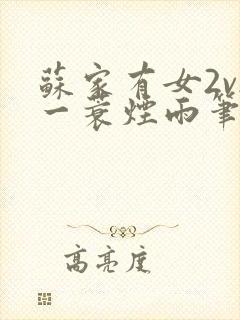 蘇家有女2v
一蓑煙雨筆
高亮度